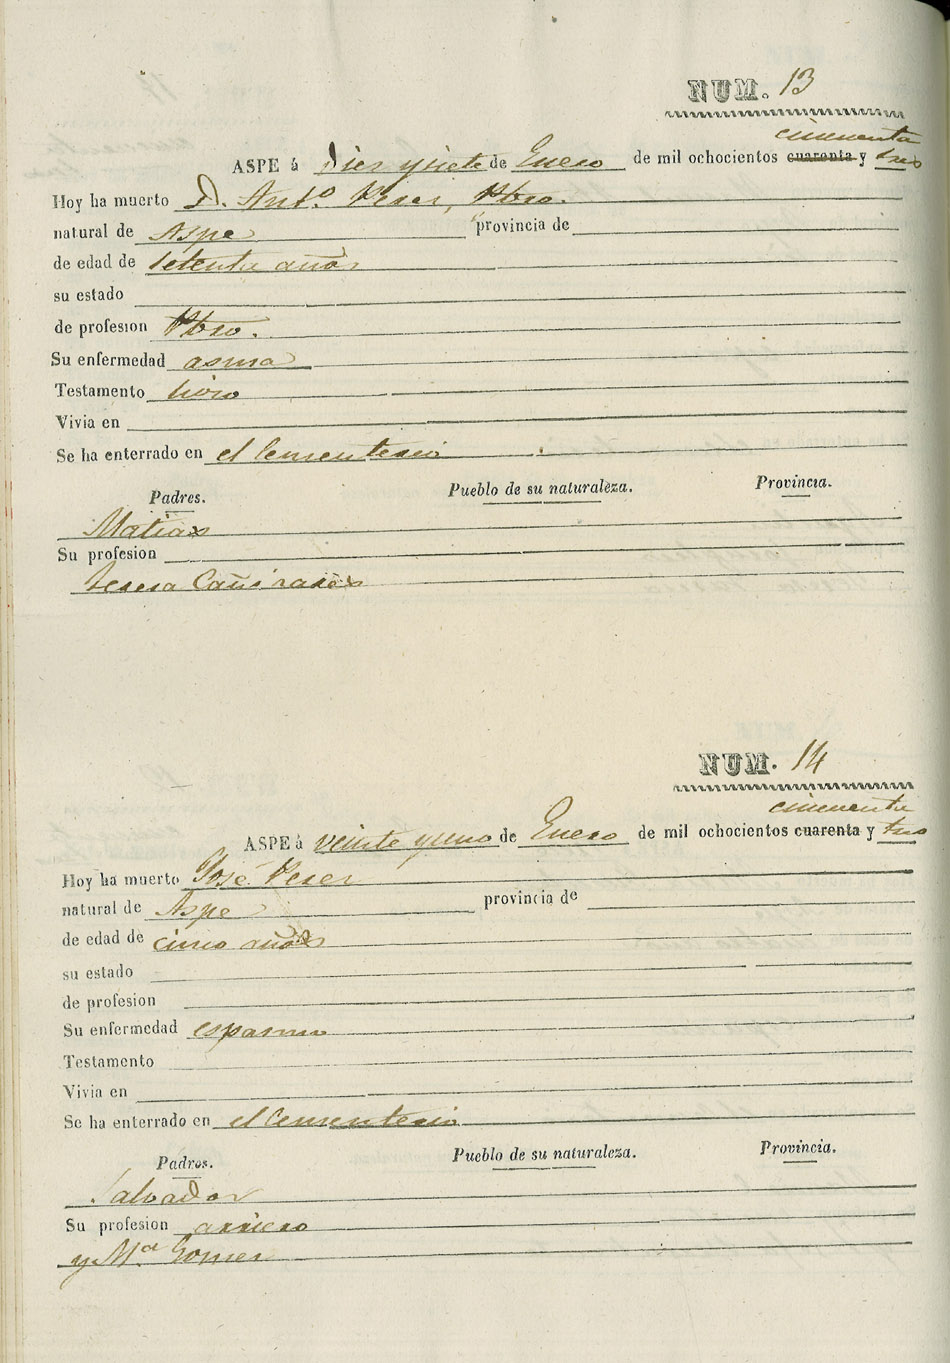 NUM. 13
cincuenta
ASPE á Diez y siete de Enero de mil ochocientos cuarenta y tres
Hoy ha muerto D. Antº. Perez, Pbro.
natural de Aspe provincia de
de edad de setenta años
su estado
de profesion Pbro.
Su enfermedad asma
Testamento hizo
Vivia en
Se ha enterrado en el Cementerio
Padres. Pueblo de su naturaleza. Provincia.
Matias
Su profesion
Teresa Cañizares
NUM. 14
cincuenta
ASPE á veinte y uno de Enero de mil ochocientos cuarenta y tres
Hoy ha muerto José Perez
natural de Aspe provincia de
de edad de cinco años
su estado
de profesion
Su enfermedad espasmo
Testamento
Vivia en
Se ha enterrado en el Cementerio
Padres. Pueblo de su naturaleza. Provincia.
Salvador
Su profesion arriero
y Mª Gomez